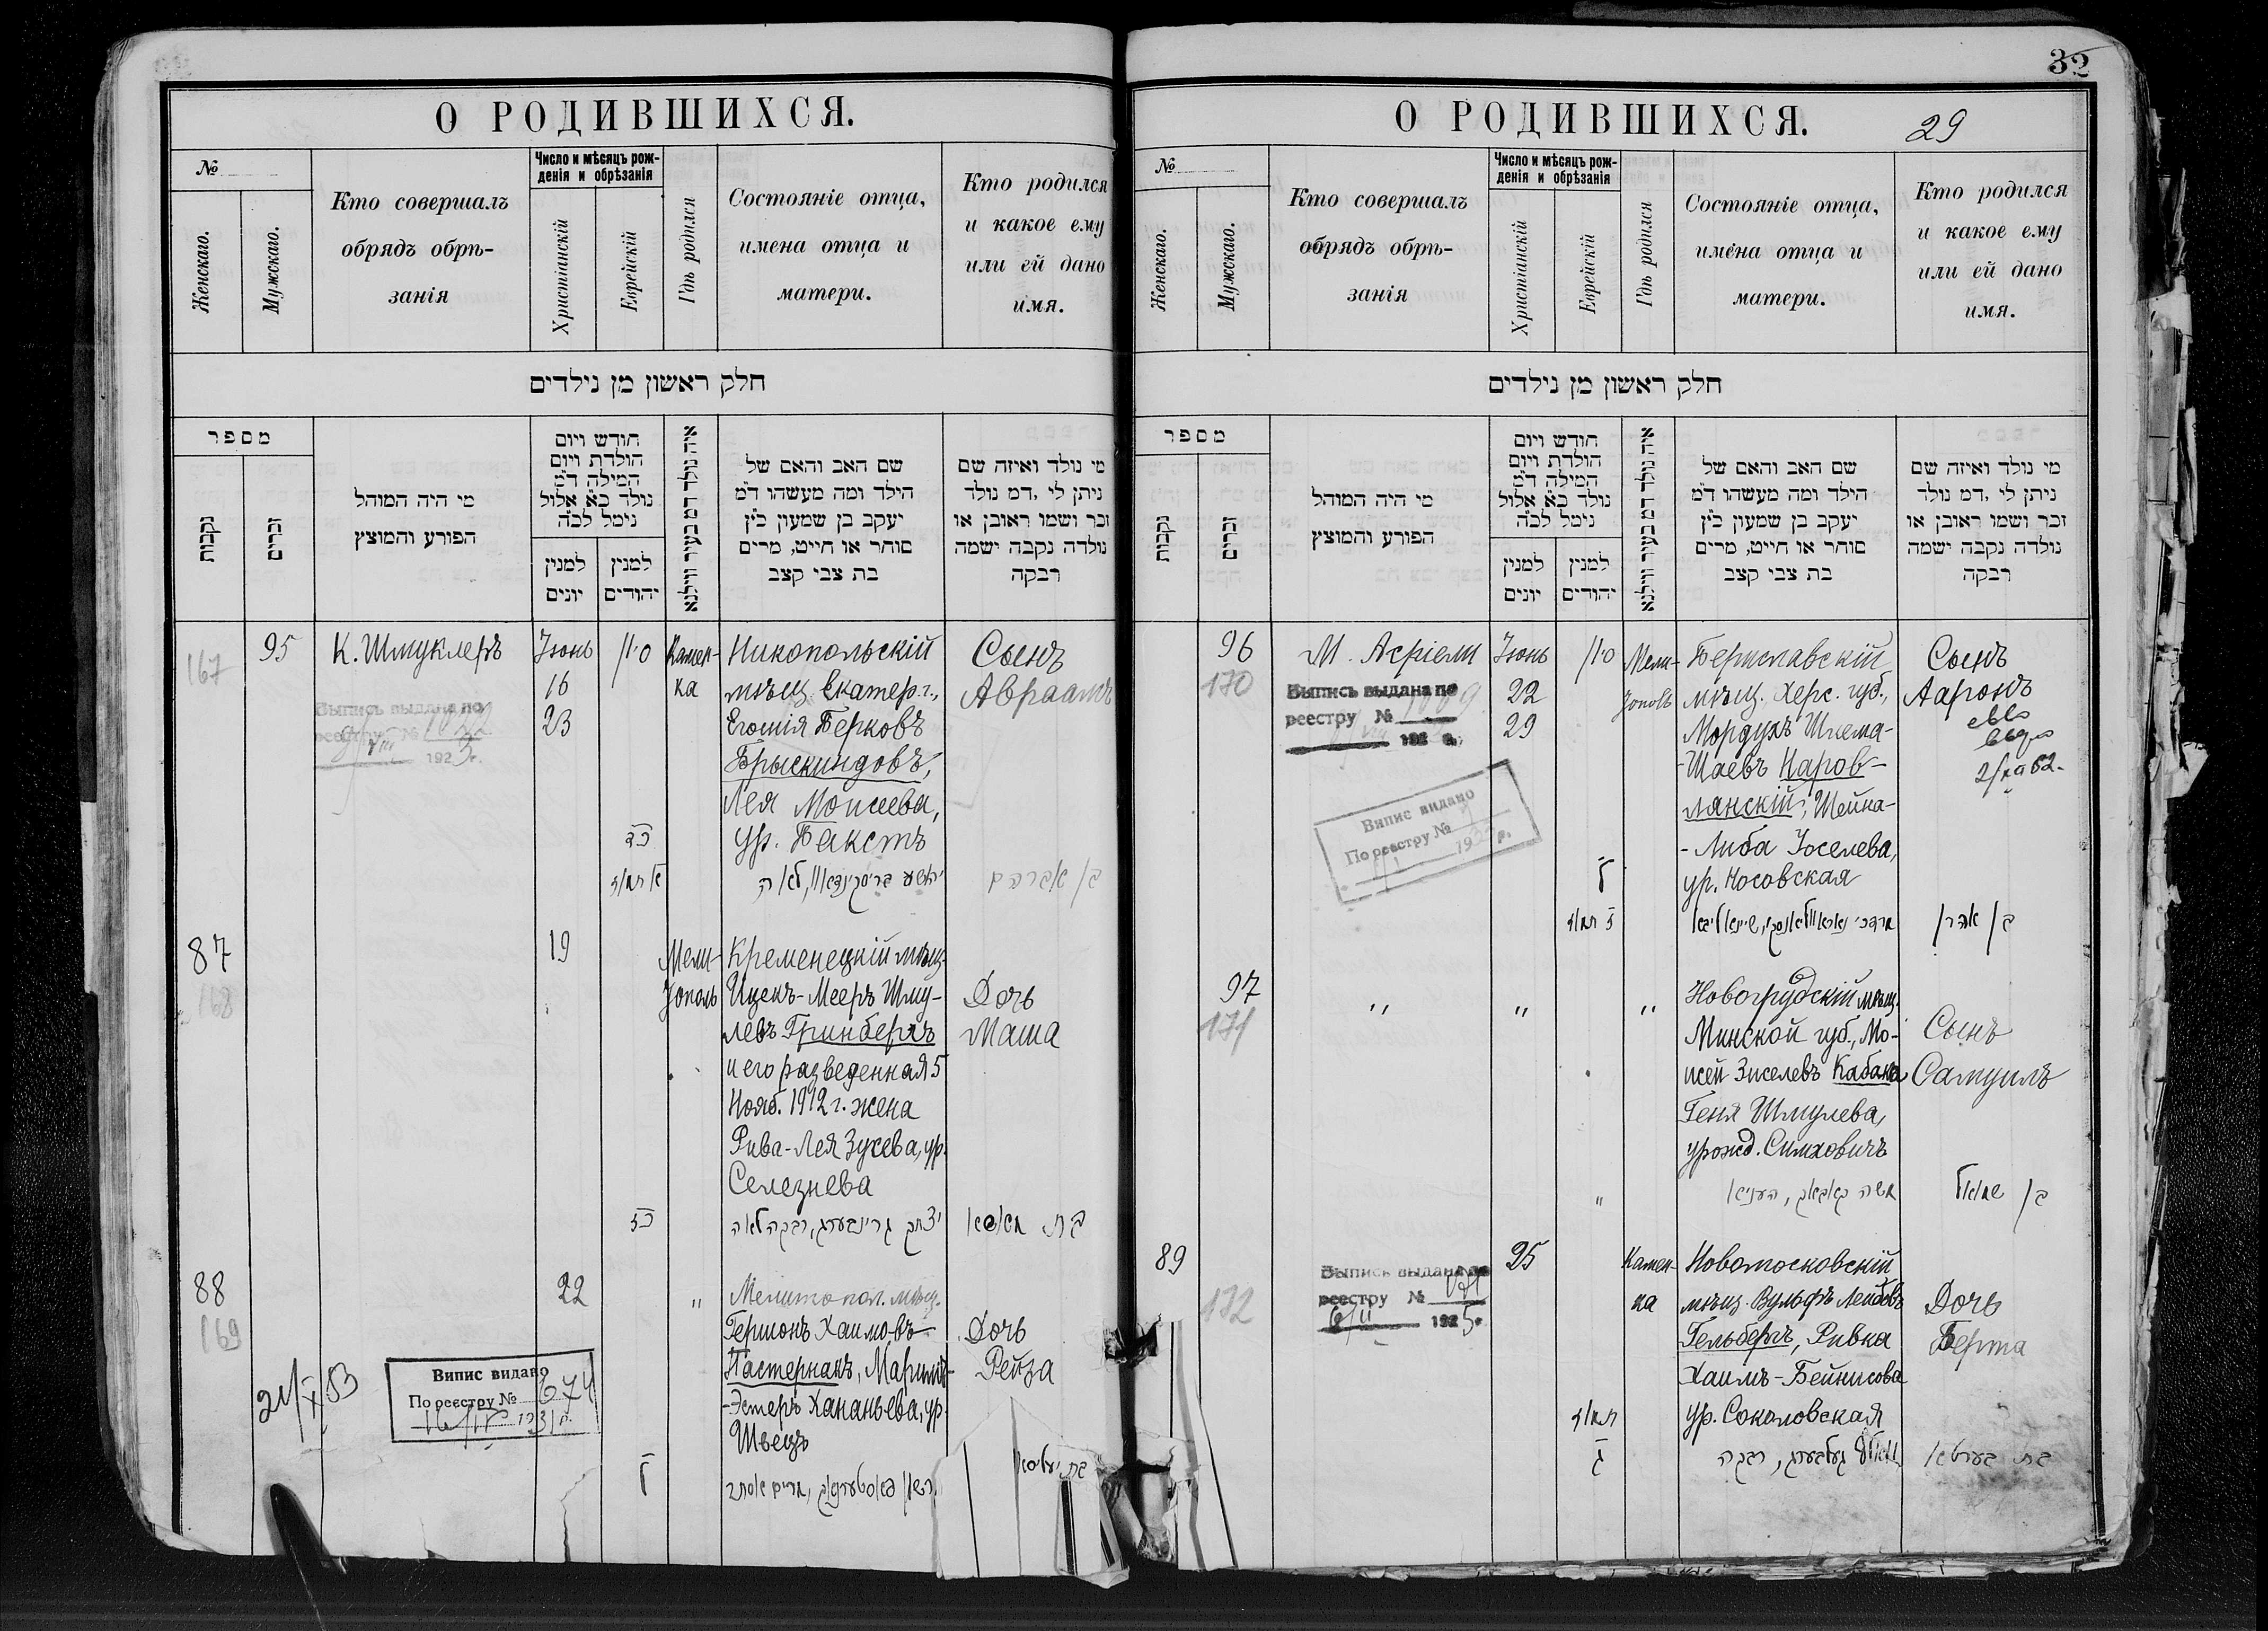 О РОДИВШИХСЯ.
№
Женскаго.
Мужскаго.
Кто совершалъ
обрядъ обрѣ-
занія
Число и мѣсяцъ рож-
денія и обрѣзанія
Христіанскій
Еврейскій
Гдѣ родился
Состояніе отца,
имена отца и
матери.
Кто родился
и какое ему
или ей дано
имя.
חלק ראשון מן נילדים
מספר
נקבות
זכרים
מי היה המוהל
הפורע והמוצץ
חודש ויום
הולדת ויום
המילה ד״מ
נולד כ״א אלול
נימל לכ״ה
למנין
יונים
למנין
יהודים
איה נולד דמ בעיר ווילנא
שם האב והאם של
הילד ומה מעשהו ד״מ
יעקב בן שמעון כ״ץ
סוחר או חייט, מרים
בת צבי קצב
מי נולד ואיזה שם
ניתן לו, דמ נולד
זכר ושמו ראובן או
נולדה נקבה ישמה
רבקה
167
95
К. Шмуклеръ
Выпись выдана по
реестру № 1022
192 г.
Іюнь
16
23
סיון
כד
תמוז
Камен-
ка
Никопольскій
мѣщ. Екатер. г.,
Егошія Берковъ
Брыскиндовъ,
Лея Моисеева,
ур. Бакстъ
Сынъ
Авраамъ
בן אברהם
87
168
19
כז
Мели-
тополь
Кременецкій мѣщ.
Ицекъ-Мееръ Шму-
левъ Гринбергъ
и его разведенная 5
Нояб. 1912 г. жена
Рива-Лея Зусева, ур.
Селезнева
יצחק גרינבערג, רבקה לאה
Дочь
Маша
בת מאשא
88
169
21/X 53
Випис видано
По реєстру № 674
1931 р.
22
״
Мелитопол. мѣщ.
Гершонъ Хаимовъ
Пастернакъ, Маріимъ-
-Эстеръ Хананьева, ур.
Швецъ
Дочь
Рейза
32
О РОДИВШИХСЯ.
29
№
Женскаго.
Мужскаго.
Кто совершалъ
обрядъ обрѣ-
занія
Число и мѣсяцъ рож-
денія и обрѣзанія
Христіанскій
Еврейскій
Гдѣ родился
Состояніе отца,
имена отца и
матери.
Кто родился
и какое ему
или ей дано
имя.
חלק ראשון מן נילדים
מספר
נקבות
זכרים
מי היה המוהל
הפורע והמוצץ
חודש ויום
הולדת ויום
המילה ד״מ
נולד כ״א אלול
נימל לכ״ה
למנין
יונים
למנין
יהודים
איה נולד דמ בעיר ווילנא
שם האב והאם של
הילד ומה מעשהו ד״מ
יעקב בן שמעון כ״ץ
סוחר או חייט, מרים
בת צבי קצב
מי נולד ואיזה שם
ניתן לו, דמ נולד
זכר ושמו ראובן או
נולדה נקבה ישמה
רבקה
96
170
М. Асріели
Выпись выдана по
реестру №
192 г.
Випис видано
По реєстру №
193 р.
Іюнь
22
29
סיון
תמוז
Мели-
тополь
Бериславскій
мѣщ. Херс. губ.,
Мордухъ Шлема-
-Шаевъ Наров-
лянскій, Шейна-
-Либа Іоселева,
ур. Носовская
Сынъ
Ааронъ
בן אהרן
97
171
״
״
״
Новогрудскій мѣщ.
Минской губ., Мо-
исей Зиселевъ Кабакъ
Геня Шмулева,
урожд. Симховичъ
משה קאבאק, העניא
Сынъ
Самуилъ
בן שמואל
89
172
Выпись выдана по
реестру №
192 г.
25
תמוז
ג
Камен-
ка
Новомосковскій
мѣщ. Вульфъ Лейбовъ
Гельбергъ, Ривка
Хаимъ-Бейнисова
ур. Соколовская
וואלף געלבערג, רבקה
Дочь
Берта
בת בערטא